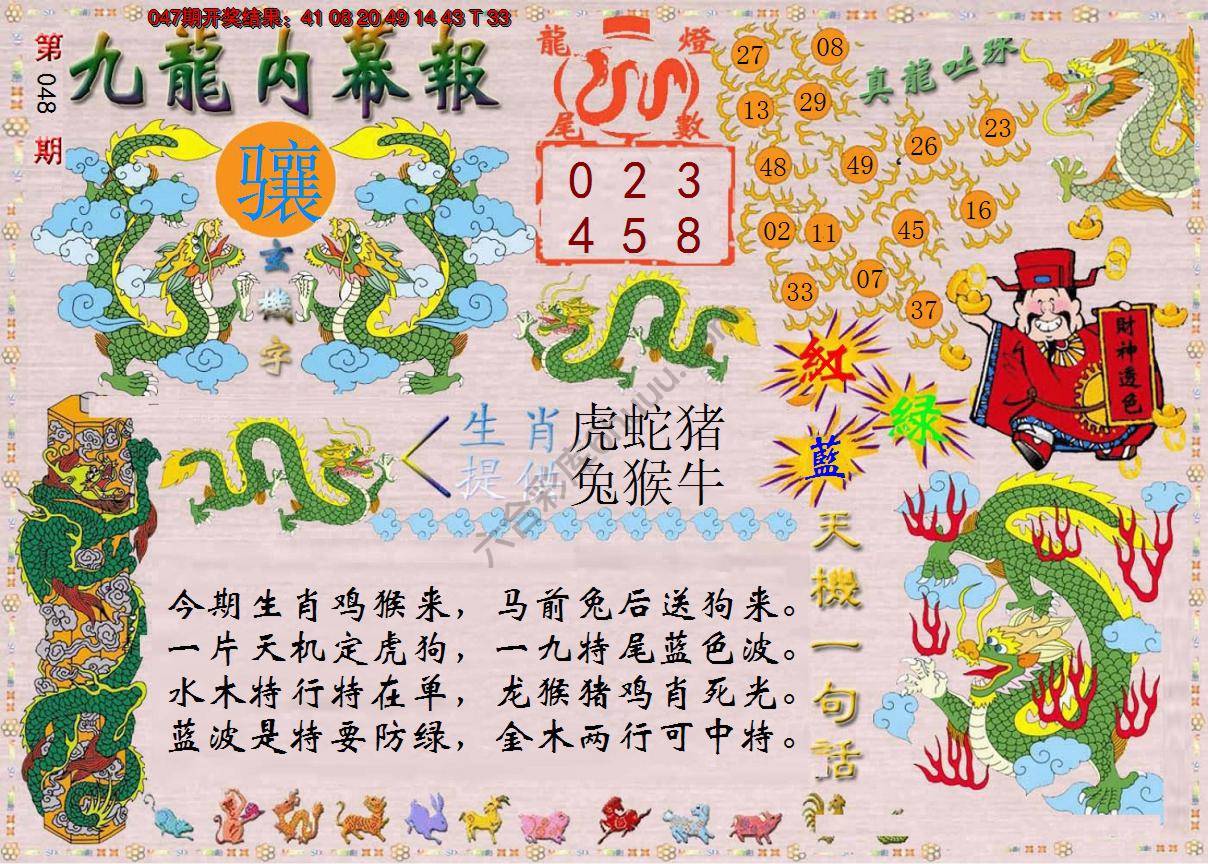 047期开奖结果：41 06 20 49 14 43 T 33
第048期
九龍内幕報
骧
玄機字
龍燈尾數
0 2 3
4 5 8
真龍吐珠
27 08
13 29
48 49 26 23
02 11 45 16
33 07 37
紅
綠
藍
財神透色
生肖提供
虎蛇猪
兔猴牛
天機一句話
今期生肖鸡猴来，马前兔后送狗来。
一片天机定虎狗，一九特尾蓝色波。
水木特行特在单，龙猴猪鸡肖死光。
蓝波是特要防绿，金木两行可中特。